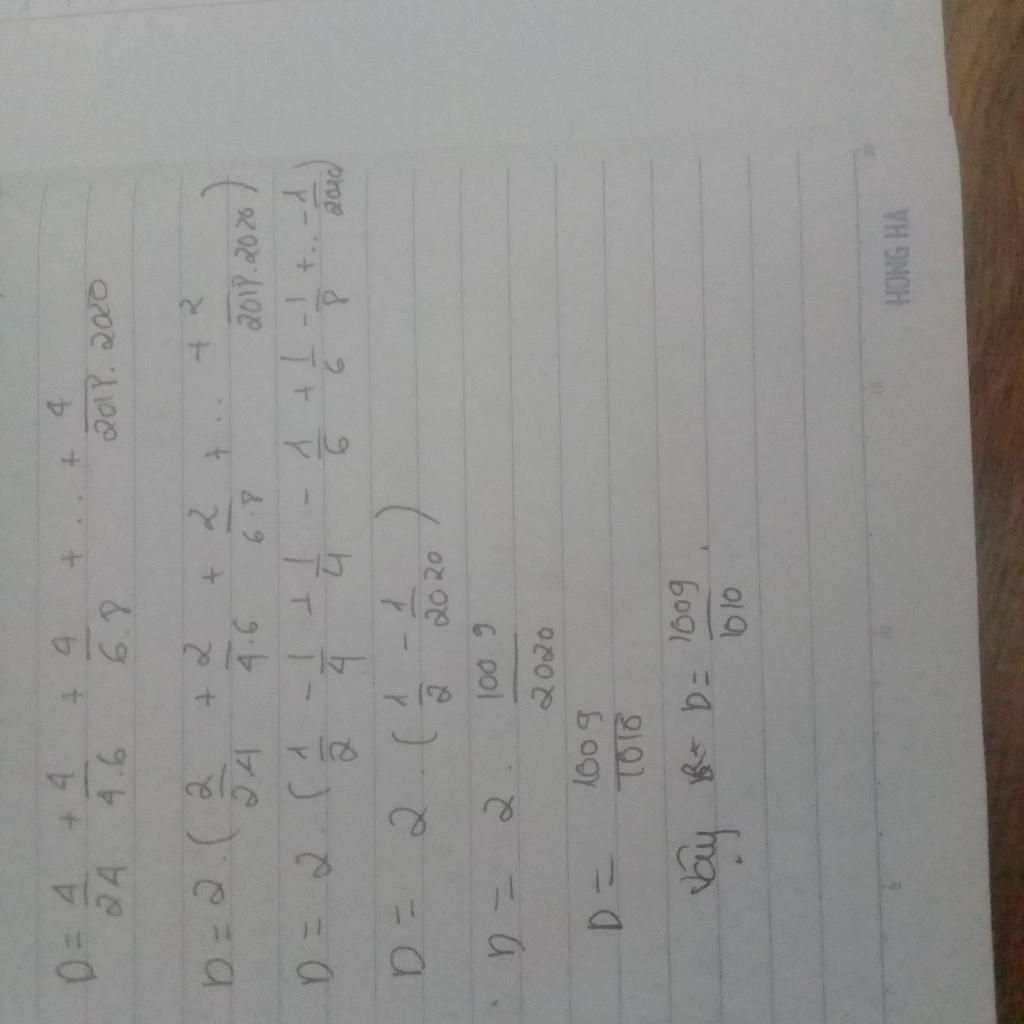 D = 4/24 + 4/4.6 + 4/6.8 + ... + 4/2018.2020
D = 2.(2/2.4 + 2/4.6 + 2/6.8 + .. + 2/2018.2020)
D = 2.(1/2 - 1/4 + 1/4 - 1/6 + 1/6 - 1/8 + .. - 1/2020)
D = 2.(1/2 - 1/2020)
D = 2. 1009/2020
D = 1009/1010
Vậy D = 1009/1010.
HONG HA